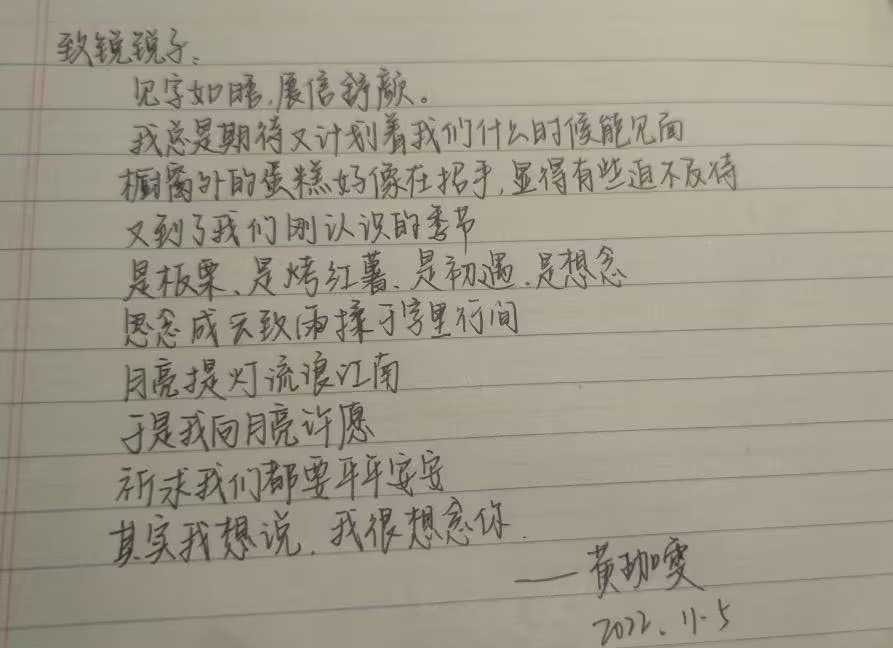 致锐锐子、
见字如晤，展信舒颜。
我总是期待又计划着我们什么的时候能见面
橱窗外的蛋糕好像在招手，显得有些迫不及待
又到了我们刚认识的季节
是板栗、是烤红薯、是初遇、是想念
思念成云致雨揉于字里行间
月亮提灯流浪江南
于是我向月亮许愿
祈求我们都要平平安安
其实我想说，我很想念你.
——黄珈雯
2022.11.5